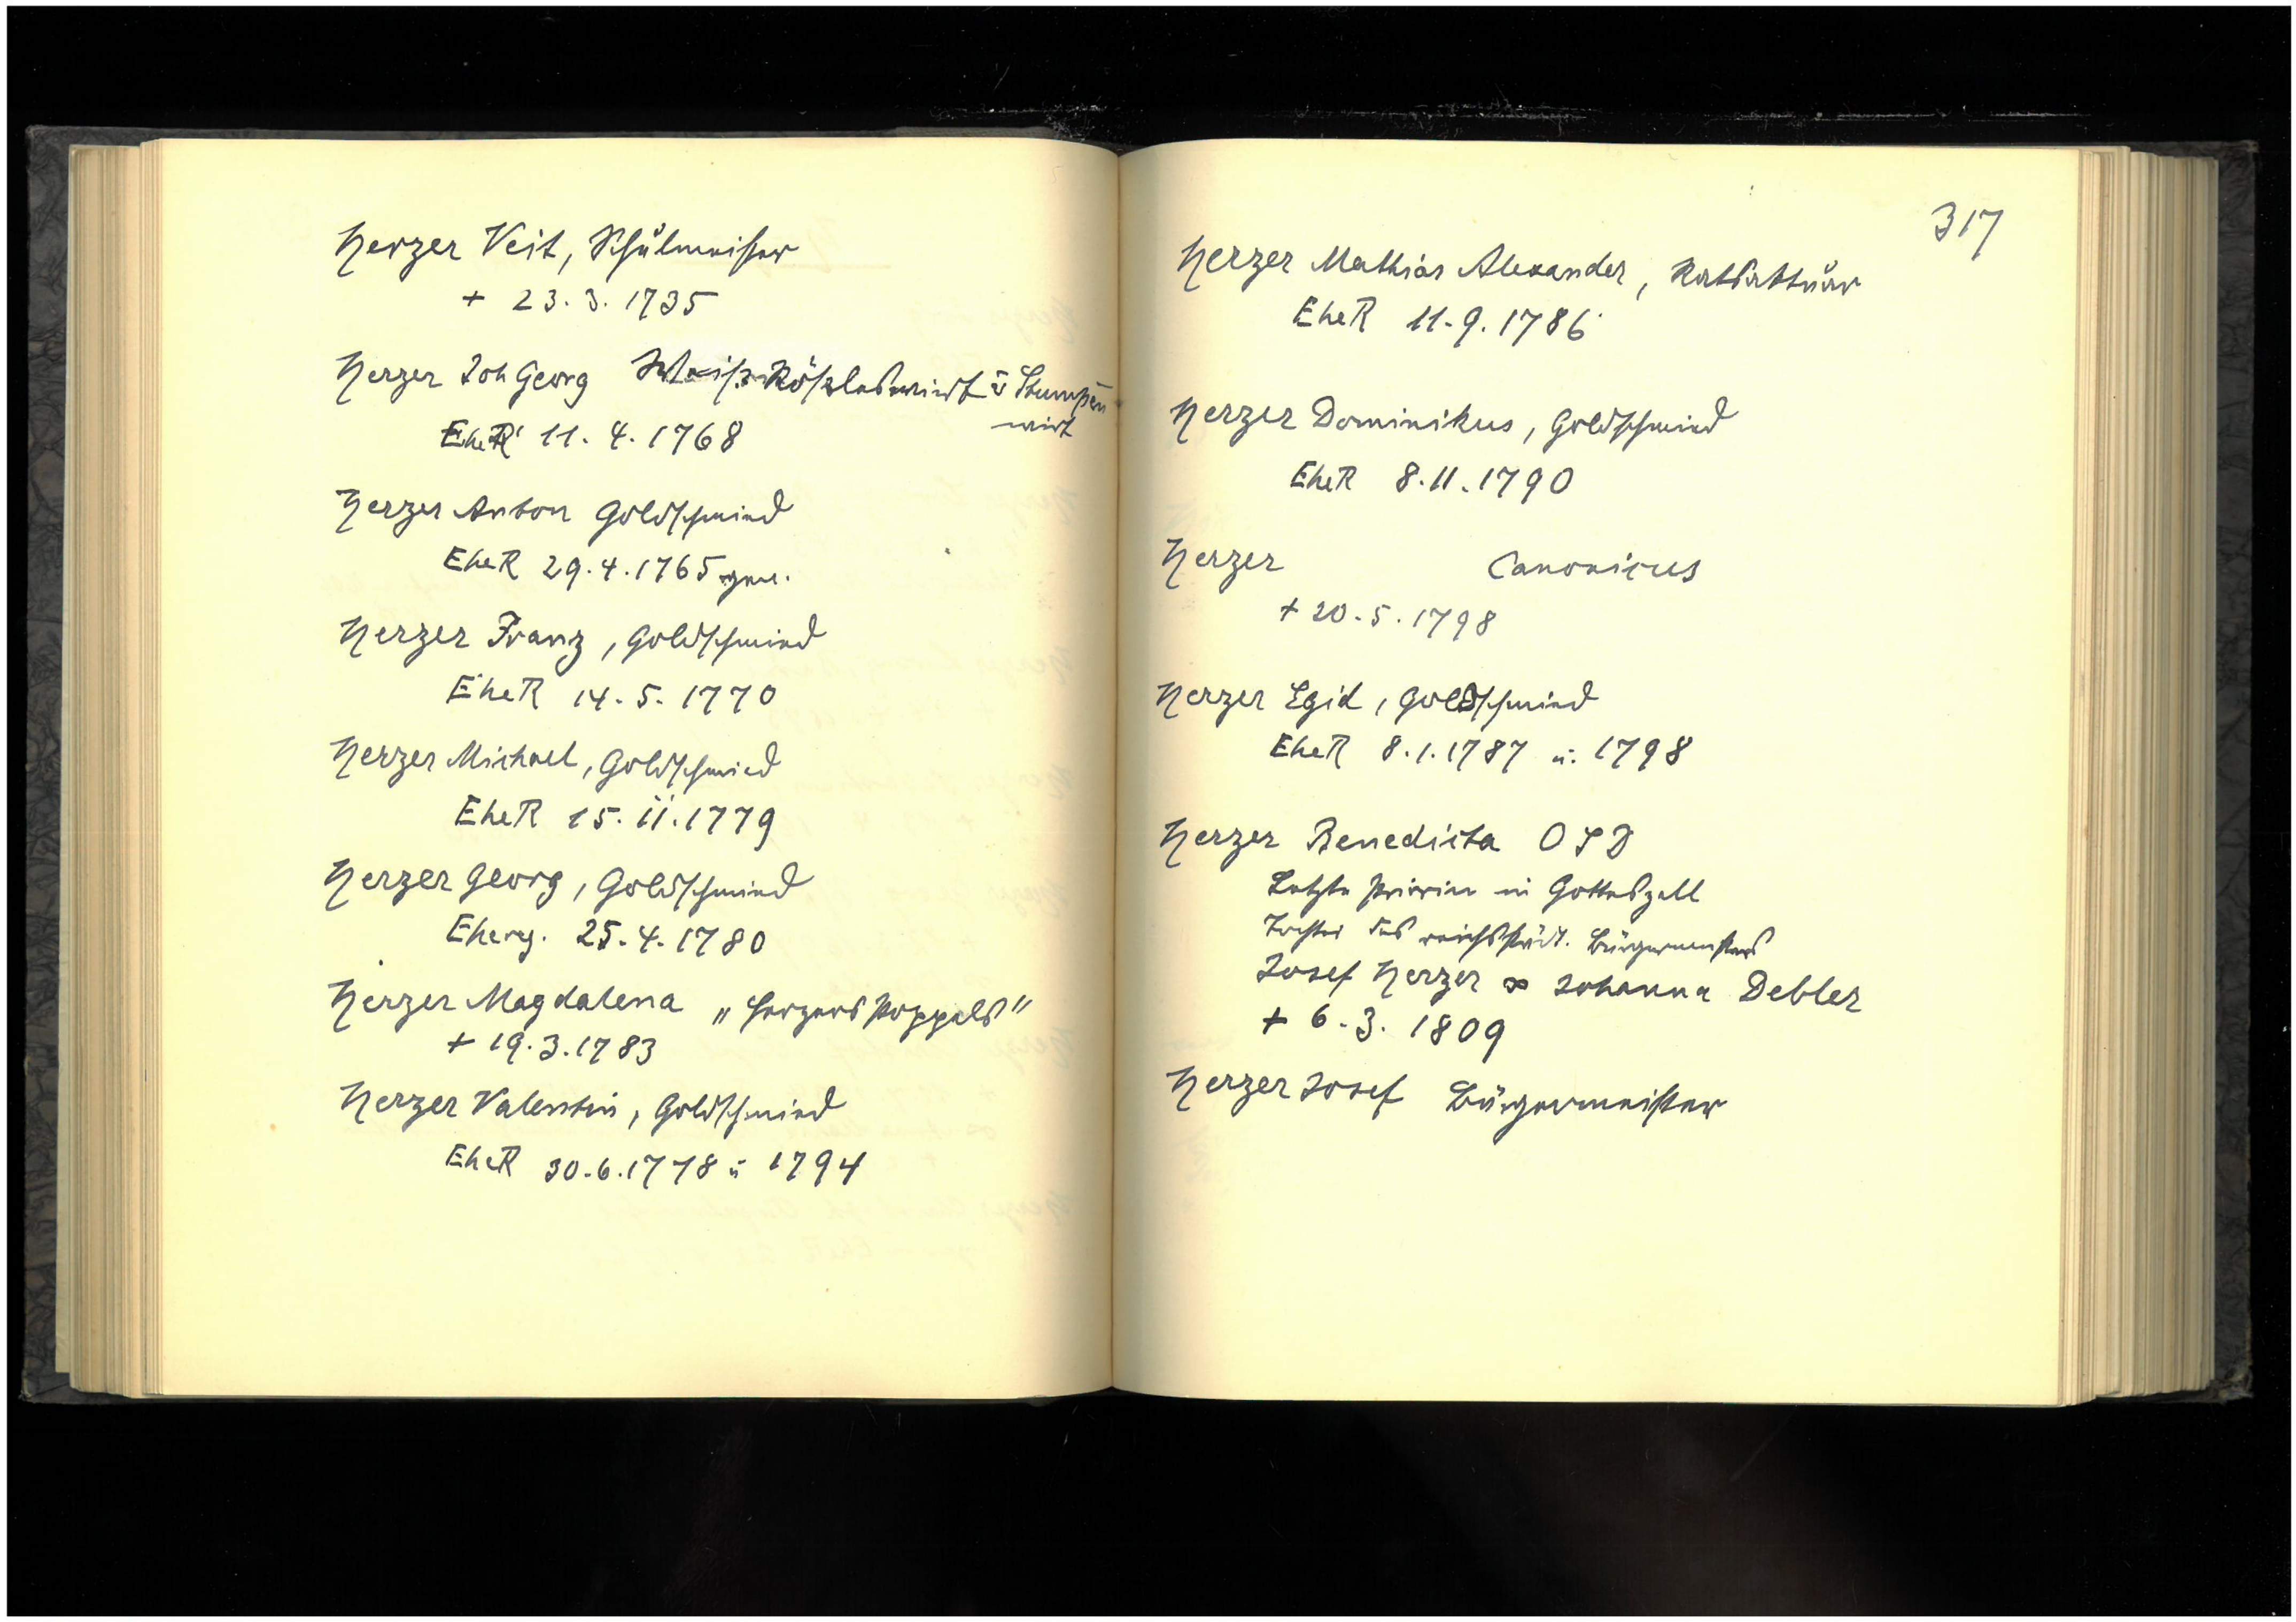 Herzer Veit, Schulmeister
+ 23. 3. 1735
Herzer Joh Georg Weiß Rößleswirt u Stumpen
wirt
EheR 11. 4. 1768
Herzer Anton Goldschmied
EheR 29. 4. 1765
Herzer Franz, Goldschmied
EheR 14. 5. 1770
Herzer Michael, Goldschmied
EheR 15. 11. 1779
Herzer Georg, Goldschmied
Ehereg. 25. 4. 1780
Herzer Magdalena „Herzers Poppels"
+ 19. 3. 1783
Herzer Valentin, Goldschmied
EheR 30. 6. 1778 u 1794
317
Herzer Mathias Alexander, Ratsaktuar
EheR 11. 9. 1786
Herzer Dominikus, Goldschmied
EheR 8. 11. 1790
Herzer Canonicus
+ 20. 5. 1798
Herzer Egid, Goldschmied
EheR 8. 1. 1787 u. 1798
Herzer Benedicta OSD
Letzte Priorin in Gotteszell
Tochter des reichsstädt. Bürgermeisters
Josef Herzer ∞ Johanna Debler
+ 6. 3. 1809
Herzer Josef Bürgermeister